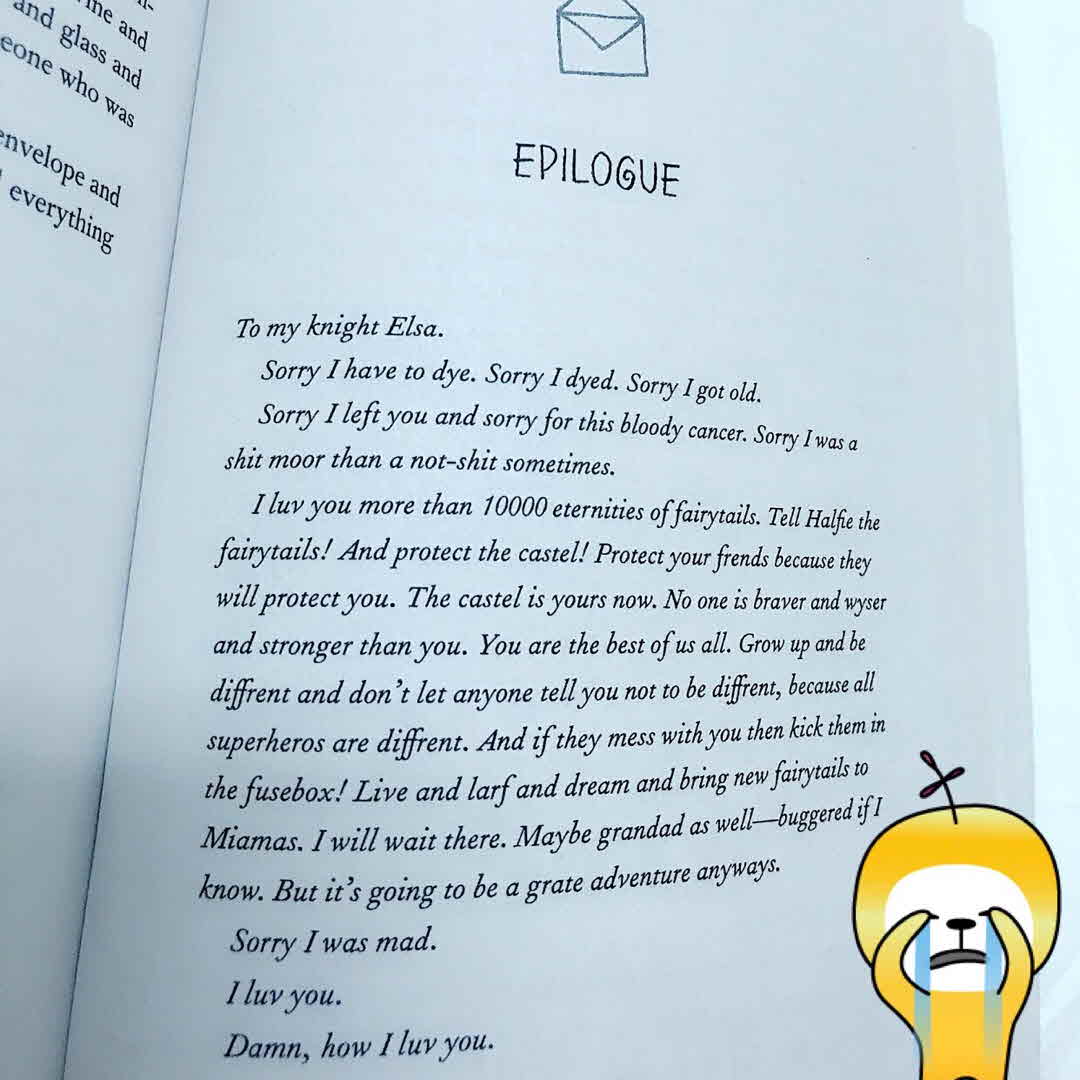 ine and
and glass and
eone who was
envelope and
everything
EPILOGUE
To my knight Elsa.
Sorry I have to dye. Sorry I dyed. Sorry I got old.
Sorry I left you and sorry for this bloody cancer. Sorry I was a
shit moor than a not-shit sometimes.
I luv you more than 10000 eternities of fairytails. Tell Halfie the
fairytails! And protect the castel! Protect your frends because they
will protect you. The castel is yours now. No one is braver and wyser
and stronger than you. You are the best of us all. Grow up and be
diffrent and don't let anyone tell you not to be diffrent, because all
superheros are diffrent. And if they mess with you then kick them in
the fusebox! Live and larf and dream and bring new fairytails to
Miamas. I will wait there. Maybe grandad as well—buggered if I
know. But it's going to be a grate adventure anyways.
Sorry I was mad.
I luv you.
Damn, how I luv you.